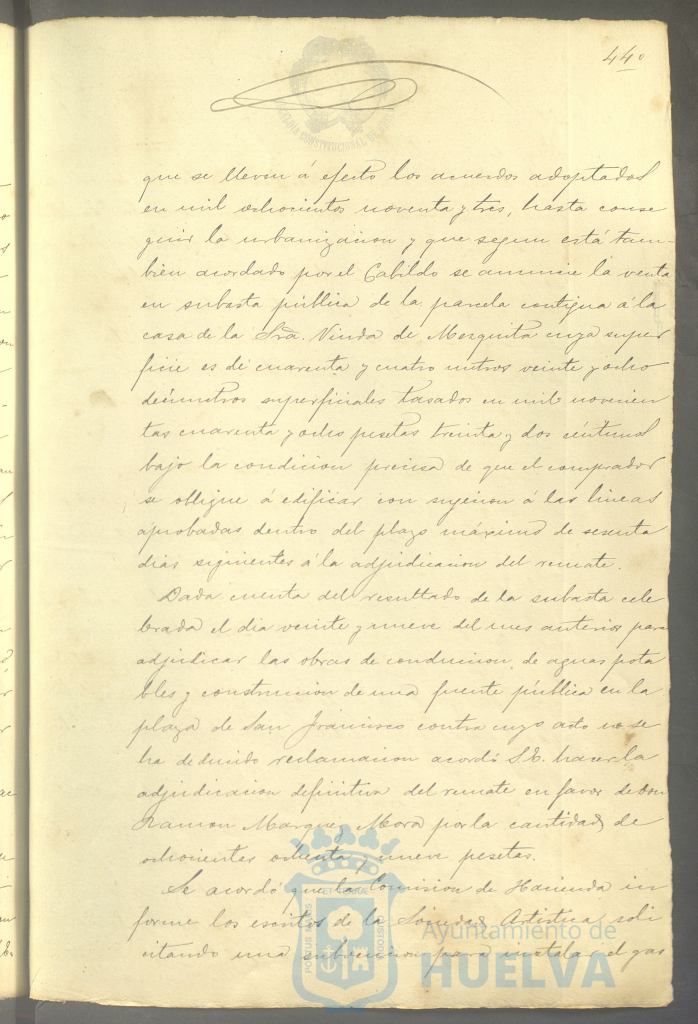 440
que se lleven á efecto los acuerdos adoptados
en mil ochocientos noventa y tres, hasta conse
guir la urbanizacion y que segun está tam-
bién acordado por el Cabildo se anuncie la venta
en subasta pública de la parcela contigua á la
casa de la Sra. Viuda de Mezquita cuya super
ficie es de cuarenta y cuatro metros veinte y ocho
decímetros superficiales tasados en mil novecien
tas cuarenta y ocho pesetas treinta y dos céntimos
bajo la condicion precisa de que el comprador
se obligue á edificar con sugecion á las lineas
aprobadas dentro del plazo máximo de sesenta
dias siguientes á la adjudicacion del remate.
Dada cuenta del resultado de la subasta cele
brada el dia veinte y nueve del mes anterior para
adjudicar las obras de conduccion de aguas pota
bles y construccion de una fuente pública en la
plaza de San Francisco contra cuyo acto no se
ha deducido reclamacion acordó S.E. hacer la
adjudicacion definitiva del remate en favor de Don
Ramon Marquez Mora por la cantidad de
ochocientas ochenta y nueve pesetas.
Se acordó que la Comision de Hacienda in
forme los escritos de la Sociedad Artistica soli
citando una subvencion para instalar el gas
Ayuntamiento de
HUELVA